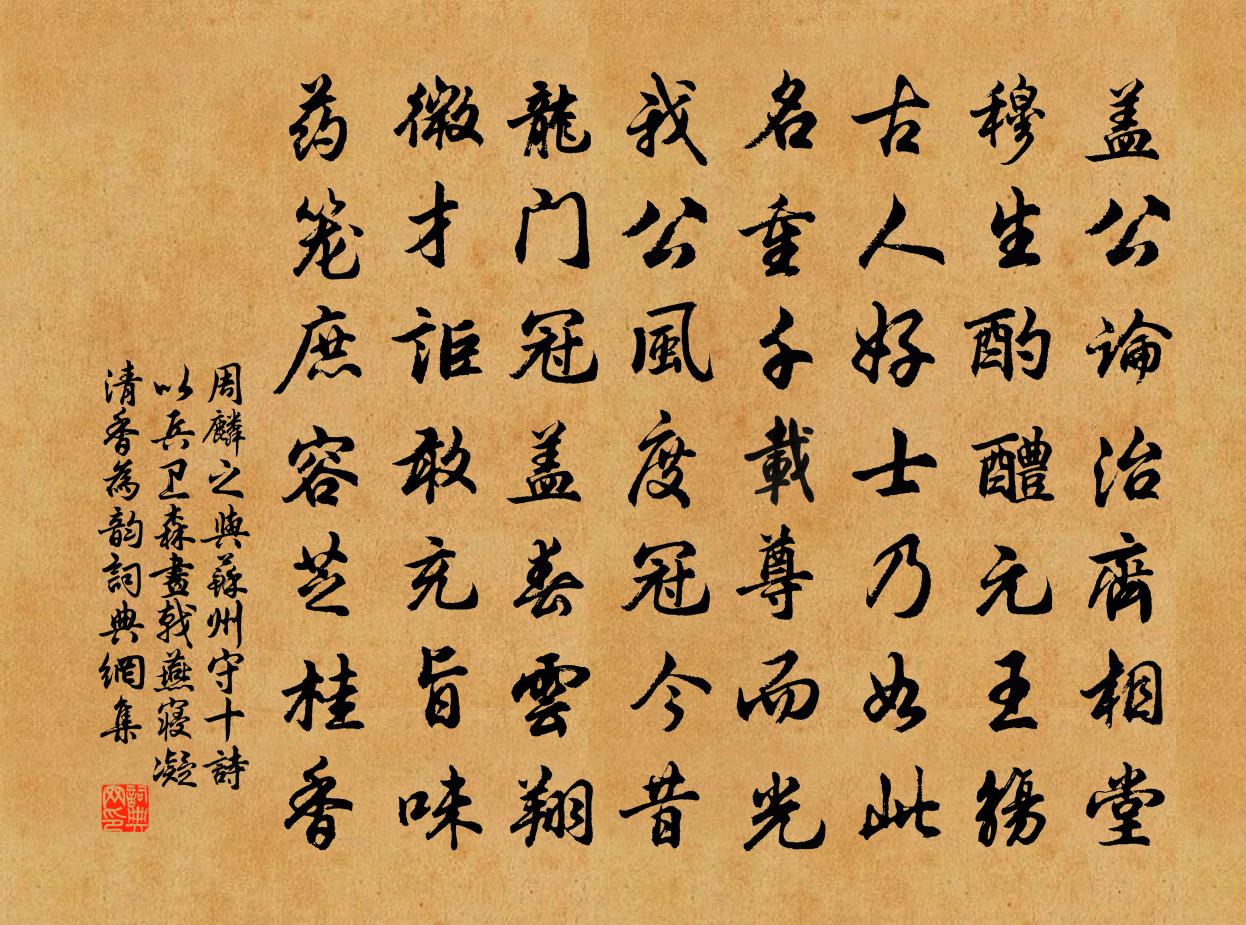 盖公論治齊相堂
穆生酌醴元王觴
古人好士乃如此
名重千載尊而光
我公風度冠今昔
龍门冠盖春雲翔
微才詎敢充旨味
药笼庶容芝桂香
周麟之與蘇州守十詩
以兵卫森畫戟燕寢凝
清香為韵詞典網集
詞典网印